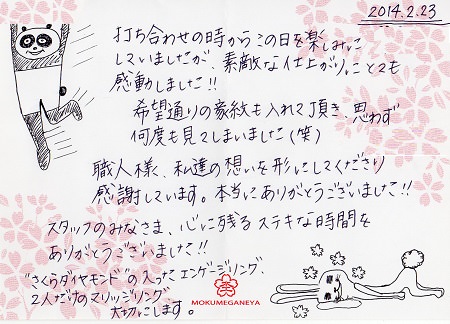 2014.2.23
打ち合わせの時からこの日を楽しみに
していましたが、素敵な仕上がりにとても
感動しました!!
希望通りの家紋も入れて頂き、思わず
何度も見てしまいました(笑)
職人様、私達の想いを形にしてくださり
感謝しています。本当にありがとうございました!!
スタッフのみなさま、心に残るステキな時間を
ありがとうございました!!
"さくらダイヤモンド"の入ったエンゲージリング、
2人だけのマリッジリング
大切にします。
MOKUMEGANEYA